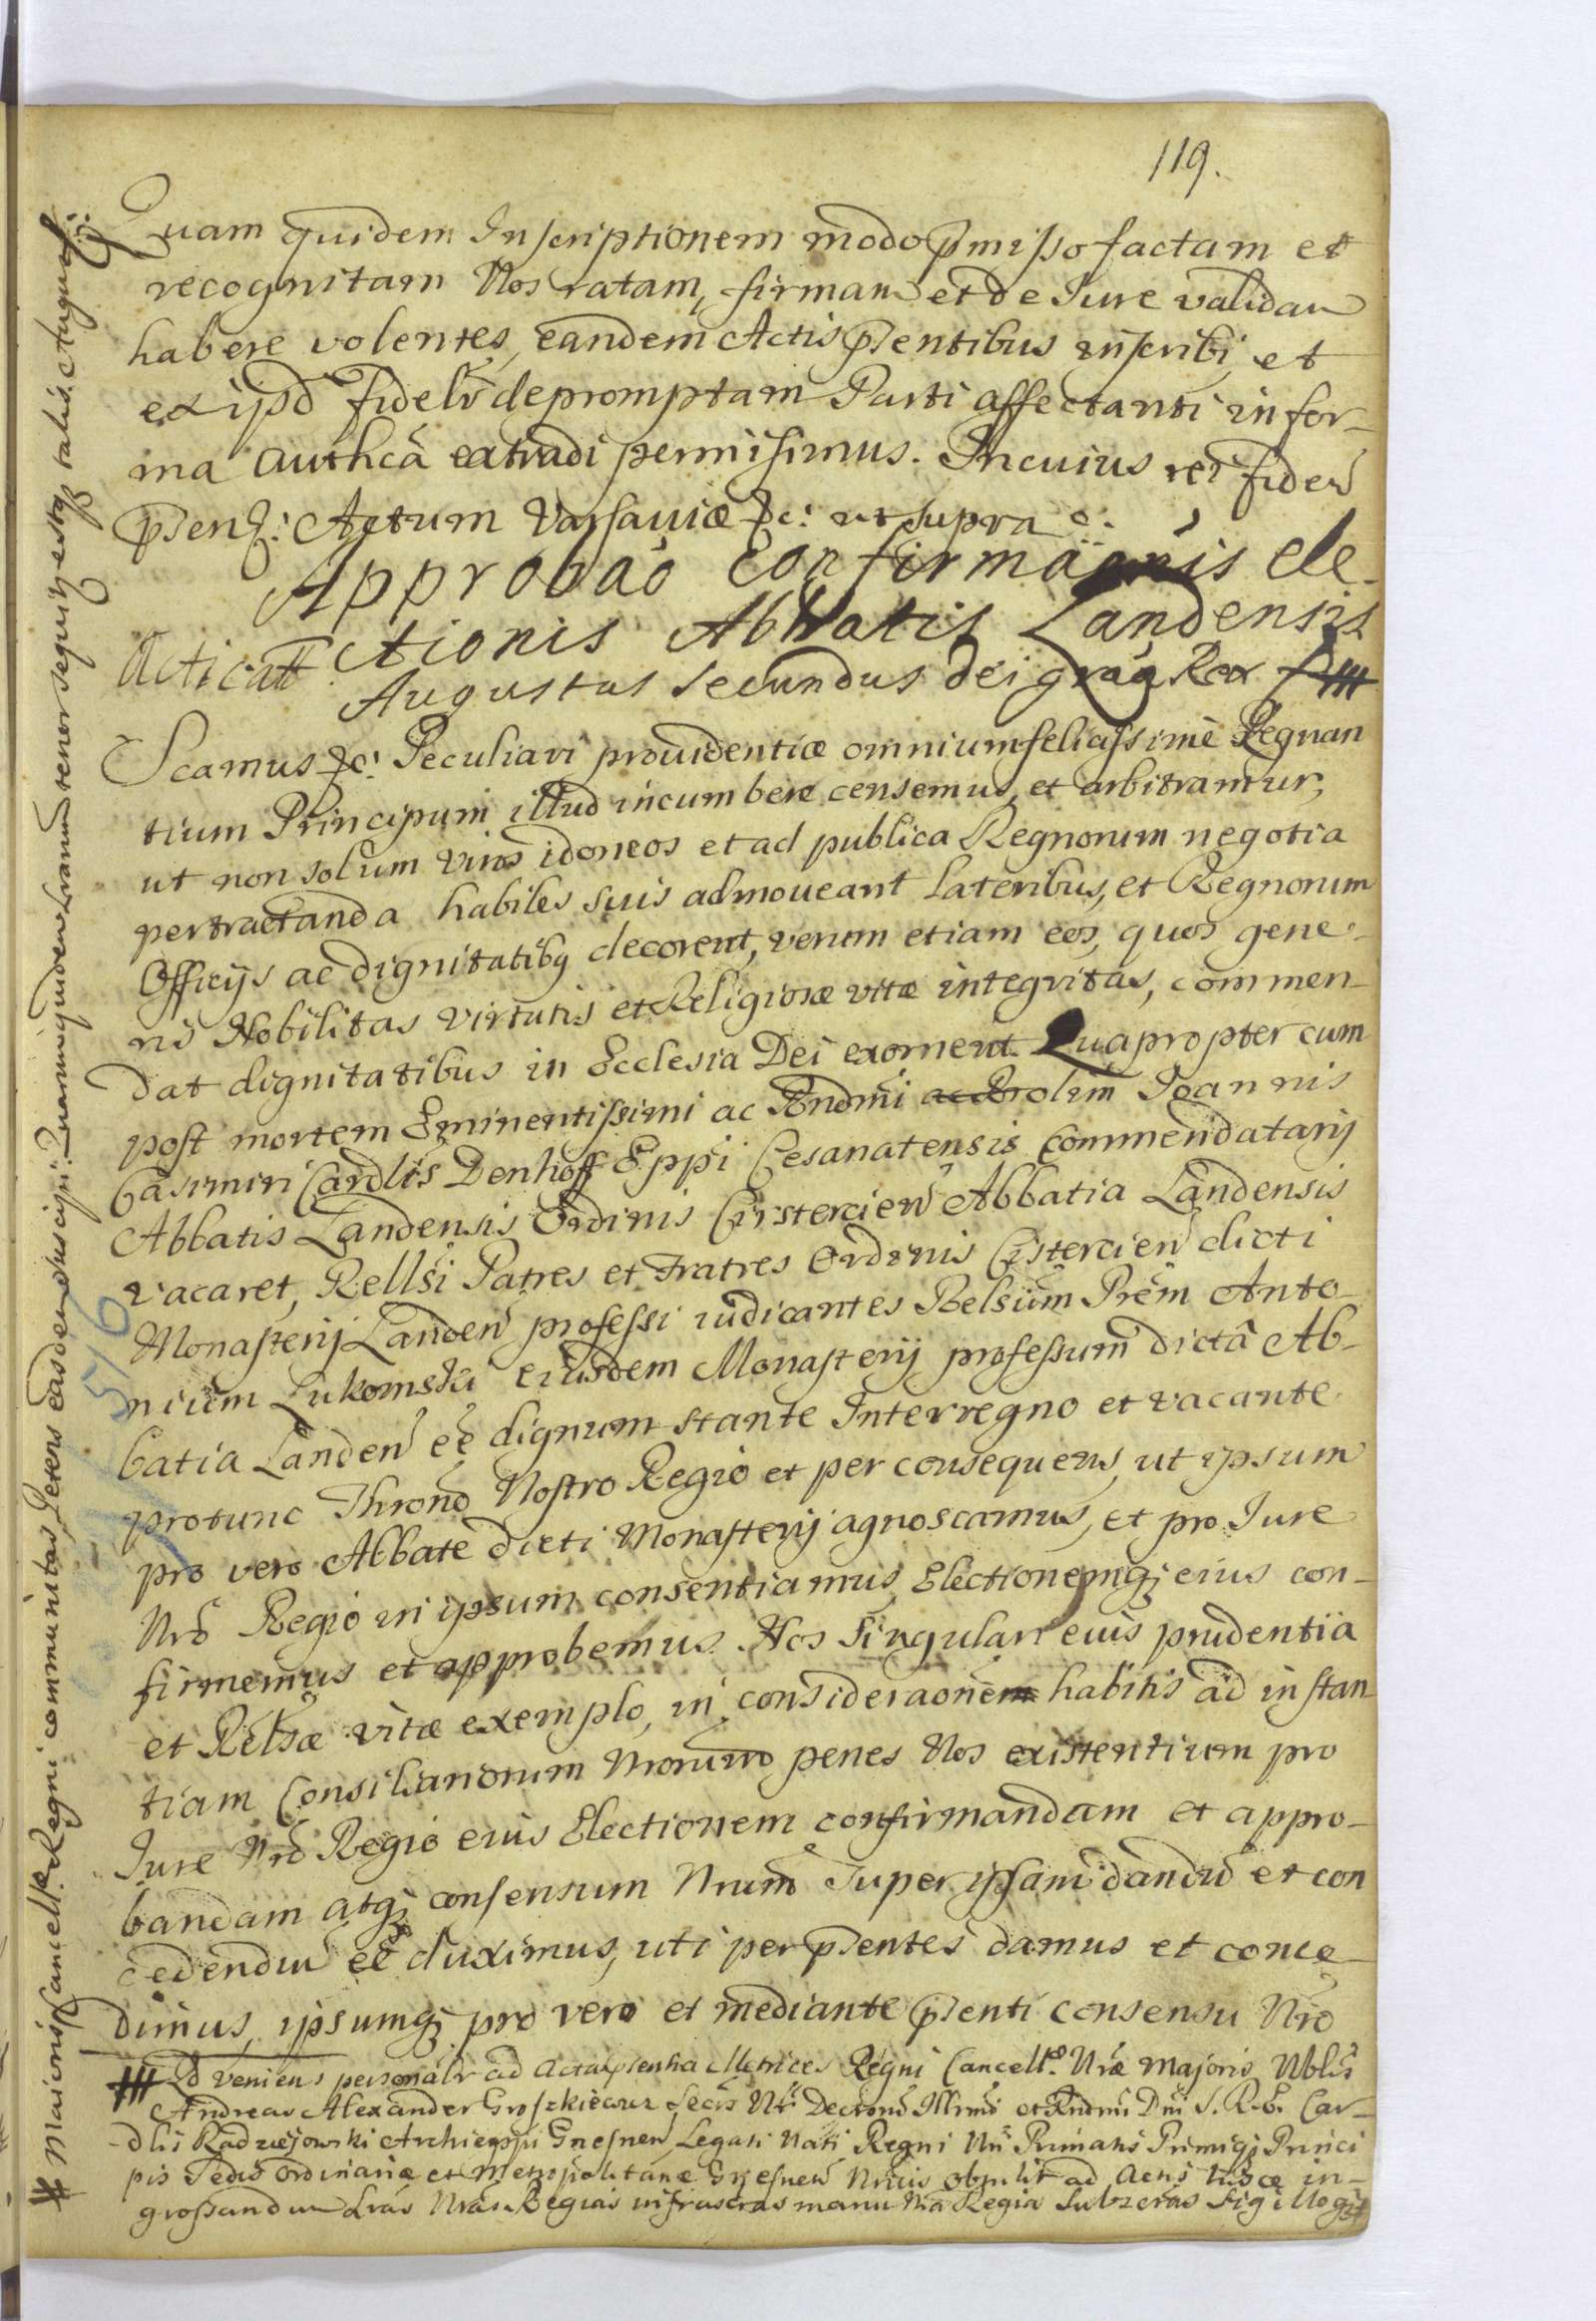 119.
Quam quidem Inscriptionem modo pmisso factam et
recognitam Nos ratam, firmam et de Iure validam
habere volentes, eandem Actis psentibus inscribi, et
ex ijsd fidelr depromptam Parti affectanti in for-
ma authcâ extradi permisimus. In cuius rei fidem
psenz: Actum Varsaviæ &c: ut supra
Approbaõ Confirmaõnis ele-
Acticatt ctionis Abbatis Landensis
Augustus Secundus Dei grãa Rex
Scamus &c: Peculiari providentiæ omnium felicissimè Regnan
tium Principum illud incumbere censemus, et arbitramur,
ut non solum viros idoneos et ad publica Regnorum negotia
pertractanda habiles suis admoveant lateribus, et Regnorum
Officijs ac dignitatibq decorent, verum etiam eos, quos gene-
ris Nobilitas virtutis et Religiosæ vitæ integritas, commen-
dat dignitatibus in Ecclesia Dei exornent. Quapropter cum
post mortem Eminentissimi ac Rndmi olim Joannis
Casimiri Cardlis Denhoff Eppi Cesanatensis Commendatarij
Abbatis Landensis Ordinis Cirsterciens Abbatia Landensis
vacaret, Rellsi Patres et Fratres Ordinis Cisterciens dicti
Monasterij Landens professi iudicantes Relsum Prem Anto-
nium Lukomski eiusdem Monasterij professum dictâ Ab-
batia Landens eê dignum stante Interregno et vacante
protunc Throno Nostro Regio et per consequens, ut ipsum
pro vero Abbate dicti Monasterij agnoscamus, et pro Iure
Nrõ Regio in ipsum consentiamus, Electionemqz eius con-
firmemus et approbemus. Nos singulari eius prudentia
et Relsæ vitæ exemplo, in consideraõnem habitis ad instan
tiam Consiliariorum Nrorum penes Nos existentium pro
Iure Nrõ Regio eius Electionem confirmandam et appro-
bandam atqz consensum Nrum super ipsam dandu et con
cedendu eê duximus, uti per psentes damus et conce
dimus, ipsumqz pro vero et mediante psenti consensu Nrõ
Ad Veniens personalr ad Acta psentia Metrices Regni Cancell. Nræ Majoris Nblis
Andreas Alexander Secris Nr Illrmi et Rndmi Dni S. R. E. Car-
dlis Radziejowski Archieppi Gnesnen Legati Nati Regni Nri Primatis Primiqz Princi
pis Sedis Ordinariæ et Metropolitanæ Gnesnen obtulit ad Actis hisce in-
grossandum Lras Nras Regias infrascras manu Nra Regia Subscras Sigilloqz
Maioris Cancell. Regni communitas, Petens easdem suscipi. Quarum quidem Lrarum tenor sequitz estqz talis. Augustq.